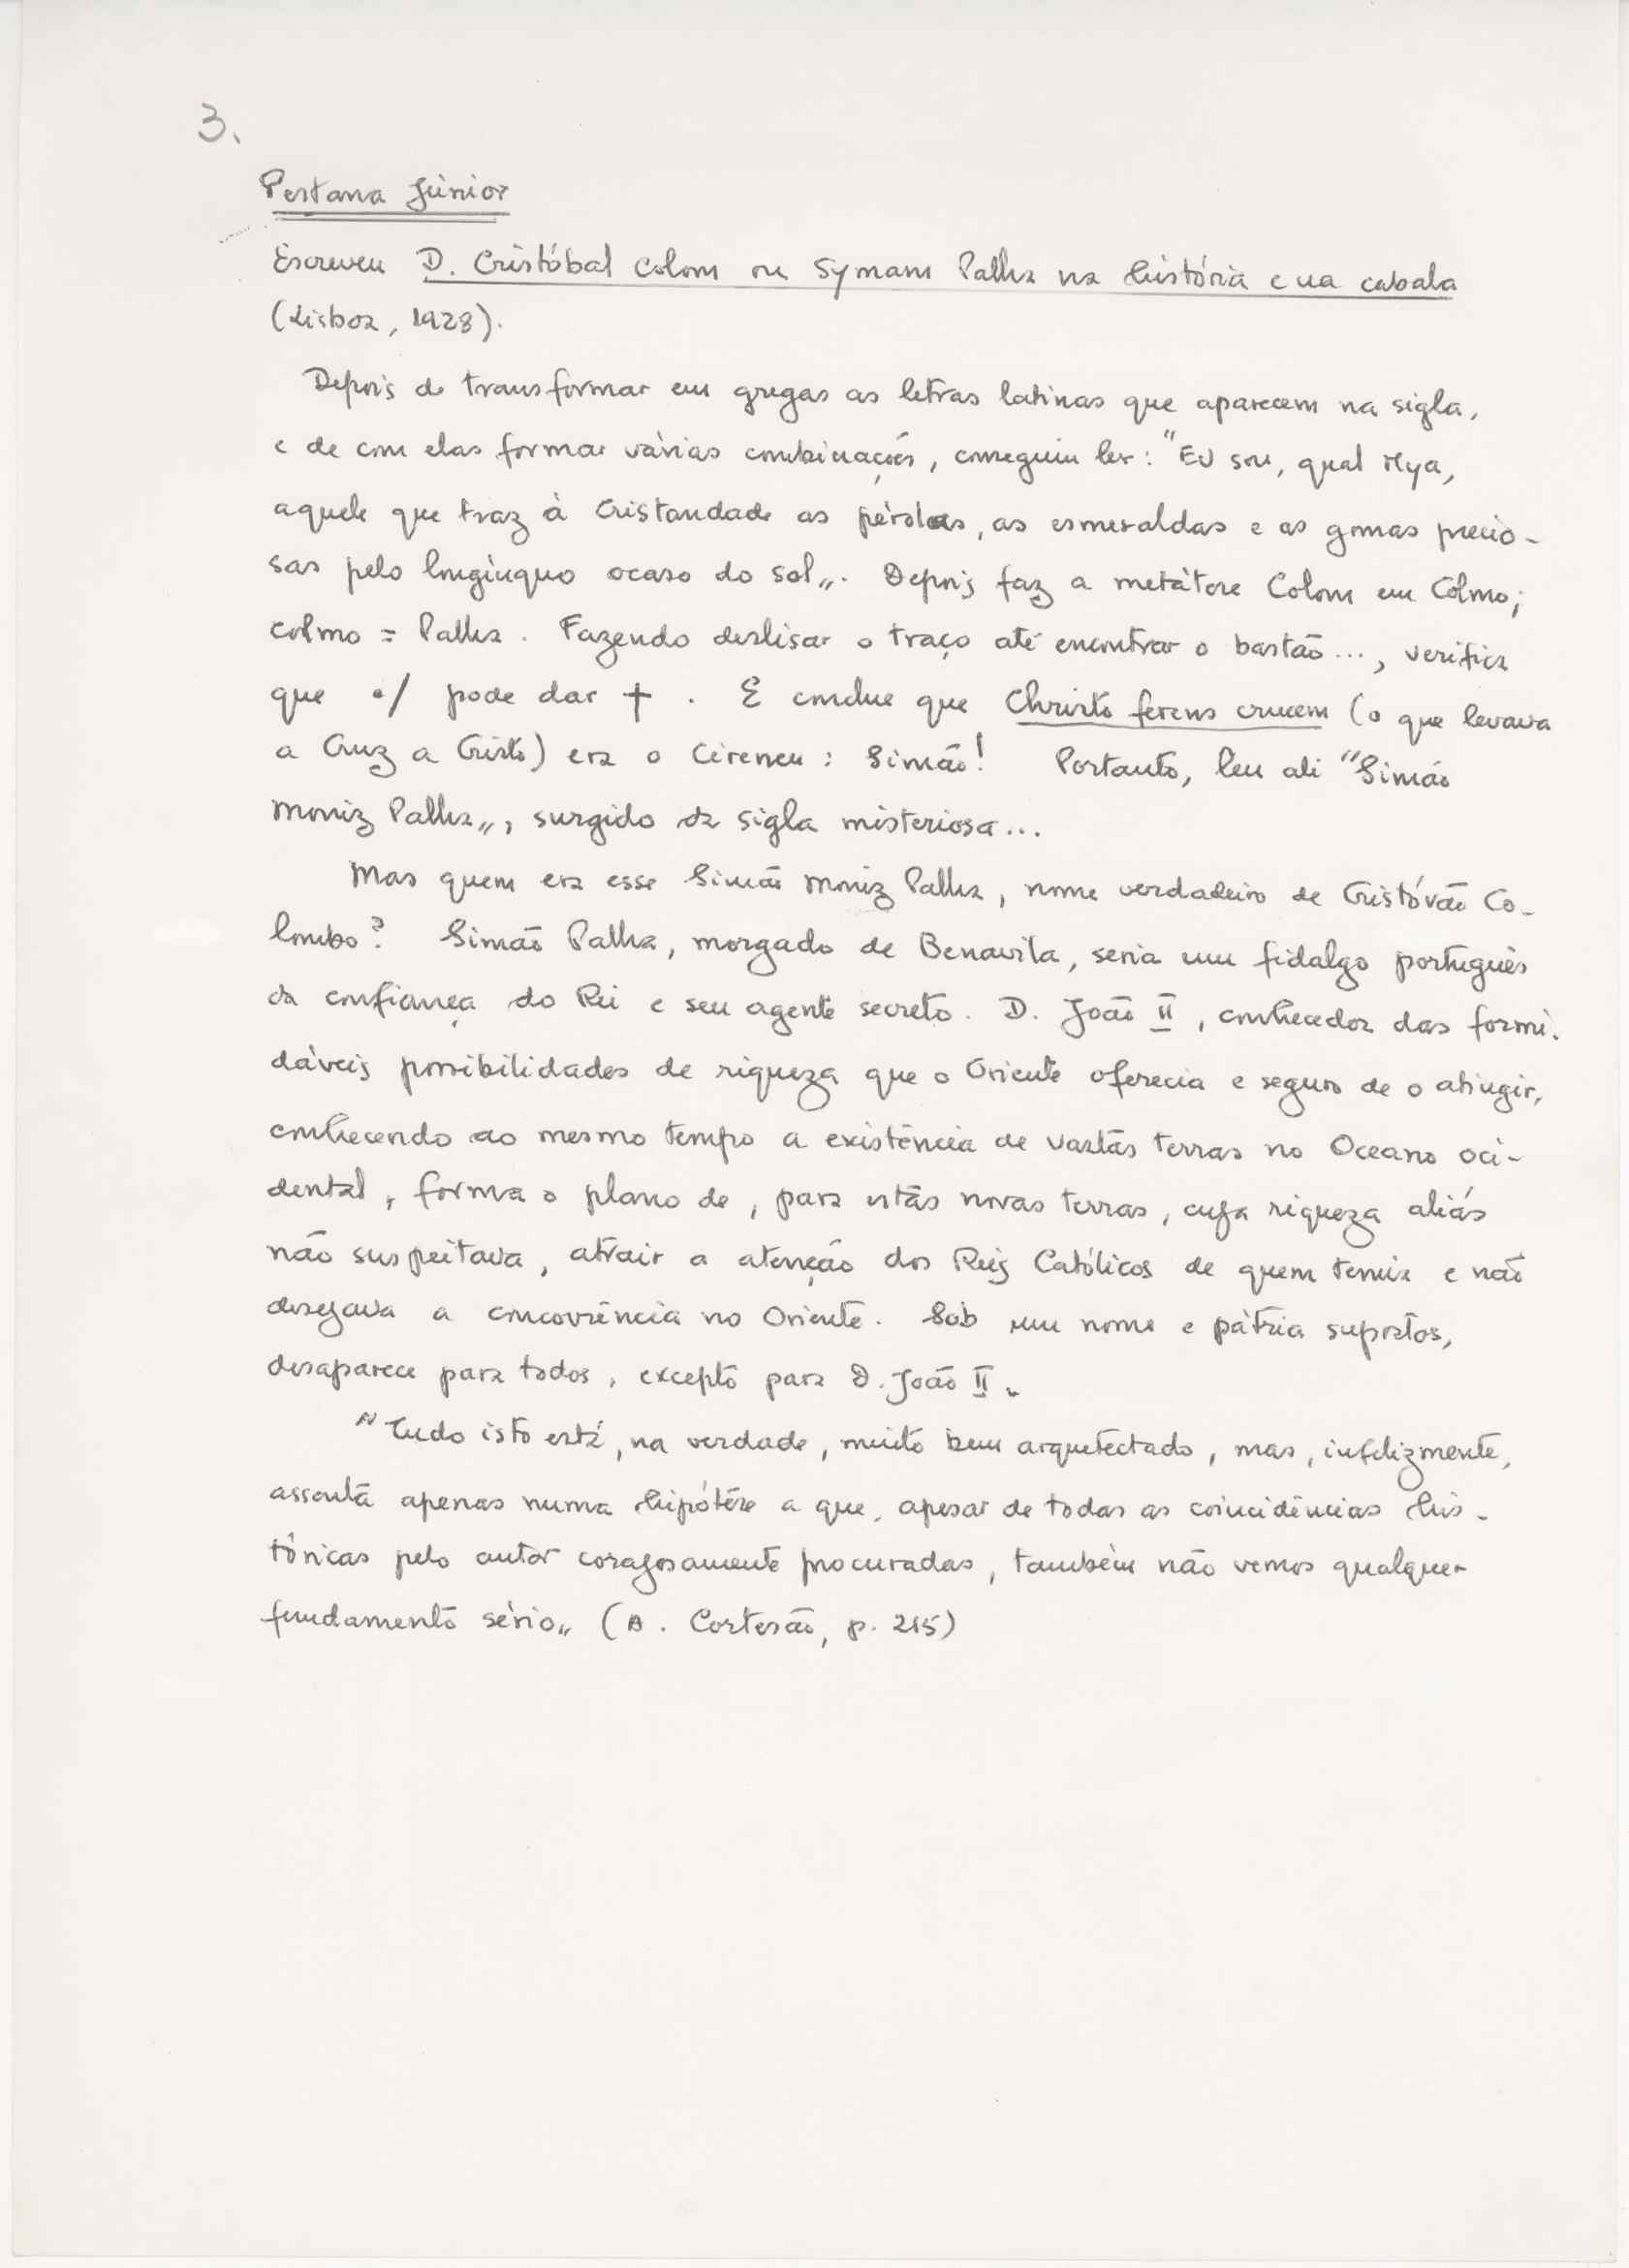 3.
Pestana Júnior
Escreveu D. Cristóbal Colom ou Symam Palha na história e na cabala
(Lisboa, 1928).
Depois de transformar em gregas as letras latinas que aparecem na sigla,
e de com elas formar várias combinações, conseguiu ler: "Eu sou, qual Mya,
aquele que traz à Cristandade as pérolas, as esmeraldas e as gomas precio-
sas pelo longínquo ocaso do sol„. Depois faz a metátese Colom em Colmo;
colmo = Palha. Fazendo deslisar o traço até encontrar o bastão..., verifica
que •/ pode dar †. E conclue que Christo ferens crucem (o que levava
a Cruz a Cristo) era o Cireneu: Simão! Portanto, leu ali "Simão
Moniz Palha„, surgido da sigla misteriosa...
Mas quem era esse Simão Moniz Palha, nome verdadeiro de Cristóvão Co-
lombo? Simão Palha, morgado de Benavila, seria um fidalgo português
da confiança do Rei e seu agente secreto. D. João II, conhecedor das formi-
dáveis possibilidades de riqueza que o Oriente oferecia e seguro de o atingir,
conhecendo ao mesmo tempo a existência de vastas terras no Oceano oci-
dental, forma o plano de, para estas novas terras, cuja riqueza aliás
não suspeitava, atrair a atenção dos Reis Católicos de quem temia e não
desejava a concorrência no Oriente. Sob um nome e pátria supostos,
desaparece para todos, excepto para D. João II.
"Tudo isto está, na verdade, muito bem arquetectado, mas, infelizmente,
assenta apenas numa hipótese a que, apesar de todas as coincidências his-
tóricas pelo autor corajosamente procuradas, também não vemos qualquer
fundamento sério„ (A. Cortesão, p. 215)